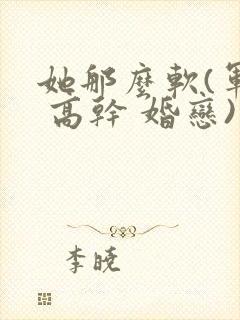 她那麼軟(軍
高幹 婚戀)
李曉